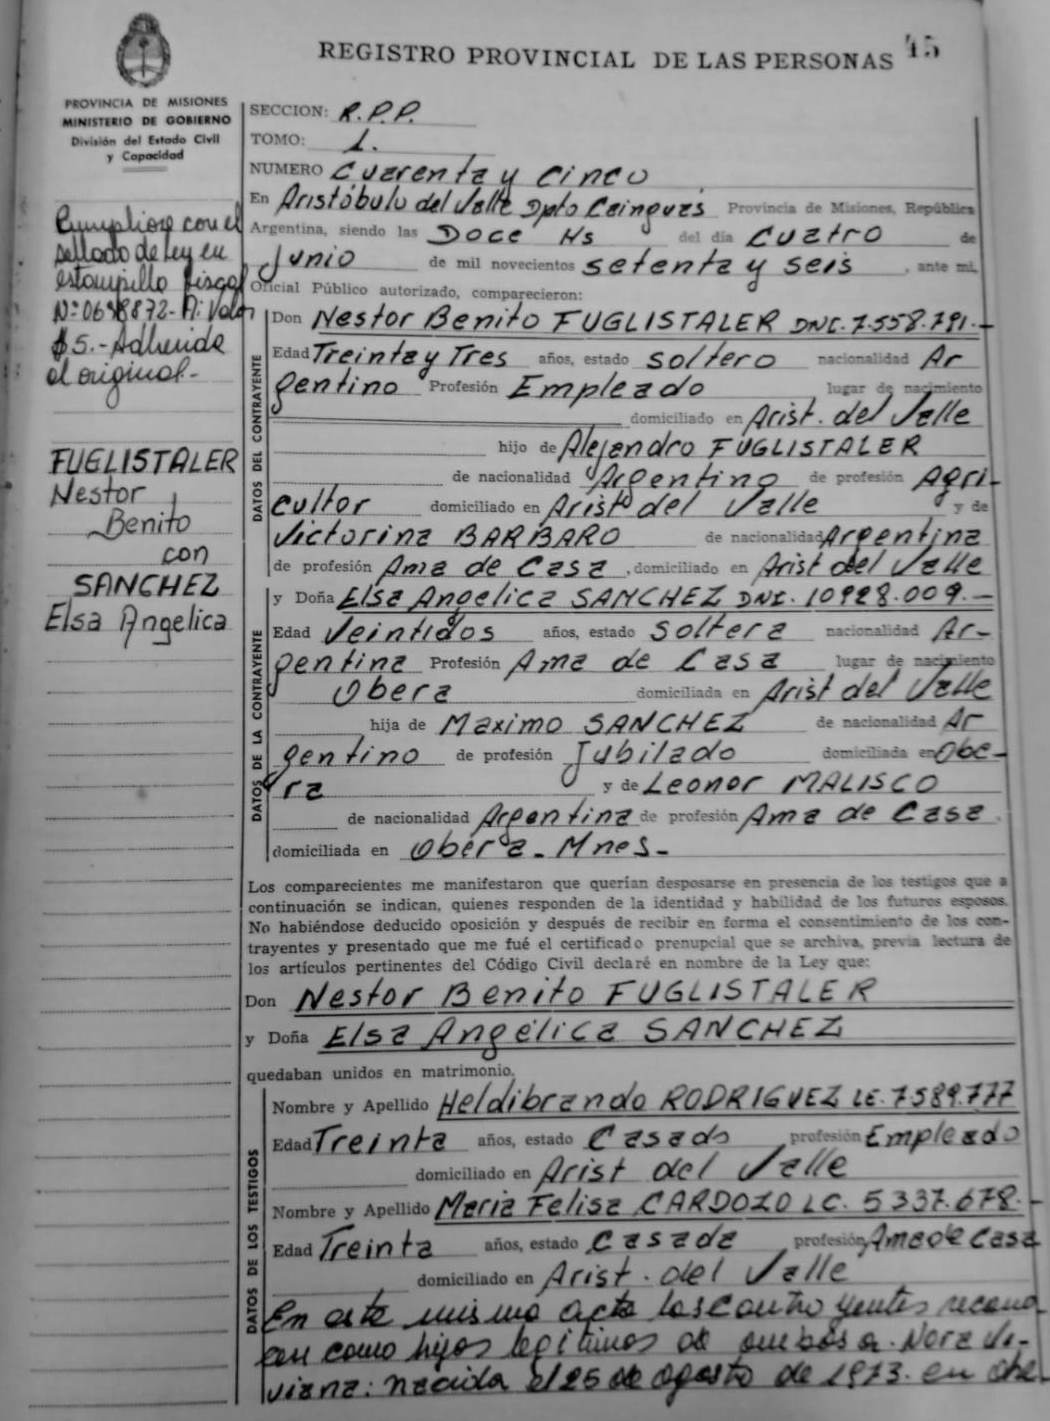 REGISTRO PROVINCIAL DE LAS PERSONAS 45
PROVINCIA DE MISIONES
MINISTERIO DE GOBIERNO
División del Estado Civil
y Capacidad
Cumpliose con el
sellado de Ley en
estampilla fiscal
Nº 0698872-A: Valor
$5.- Adherida
al original.-
FUGLISTALER
Nestor
Benito
con
SANCHEZ
Elsa Angelica
SECCION: R.P.P.
TOMO: 1.
NUMERO Cuarenta y Cinco
En Aristóbulo del Valle Dpto Caingues Provincia de Misiones, República
Argentina, siendo las Doce Hs del día Cuatro de
Junio de mil novecientos setenta y seis, ante mi,
Oficial Público autorizado, comparecieron:
DATOS DEL CONTRAYENTE
Don Nestor Benito FUGLISTALER DNI. 7.558.791.-
Edad Treinta y Tres años, estado soltero nacionalidad Ar
gentino Profesión Empleado lugar de nacimiento
domiciliado en Arist. del Valle
hijo de Alejandro FUGLISTALER
de nacionalidad Argentino de profesión Agri-
cultor domiciliado en Aristº del Valle y de
Victorina BARBARO de nacionalidad Argentina
de profesión Ama de Casa, domiciliado en Arist del Valle
DATOS DE LA CONTRAYENTE
y Doña Elsa Angelica SANCHEZ DNI. 10928.009.-
Edad Veintidos años, estado Soltera nacionalidad Ar-
gentina Profesión Ama de Casa lugar de nacimiento
Obera domiciliada en Arist del Valle
hija de Maximo SANCHEZ de nacionalidad Ar
gentino de profesión Jubilado domiciliada en Obe-
ra y de Leonor MALISCO
de nacionalidad Argentina de profesión Ama de Casa.
domiciliada en Obera - Mnes-
Los comparecientes me manifestaron que querían desposarse en presencia de los testigos que a
continuación se indican, quienes responden de la identidad y habilidad de los futuros esposos.
No habiéndose deducido oposición y después de recibir en forma el consentimiento de los con-
trayentes y presentado que me fué el certificado prenupcial que se archiva, previa lectura de
los artículos pertinentes del Código Civil declaré en nombre de la Ley que:
Don Nestor Benito FUGLISTALER
y Doña Elsa Angélica SANCHEZ
quedaban unidos en matrimonio.
DATOS DE LOS TESTIGOS
Nombre y Apellido Heldibrando RODRIGUEZ LE. 7589.777
Edad Treinta años, estado Casado profesión Empleado
domiciliado en Arist del Valle
Nombre y Apellido Maria Felisa CARDOZO LC. 5337.678.-
Edad Treinta años, estado Casada profesión Ama de Casa
domiciliado en Arist. del Valle
En este mismo acto los contrayentes recono
cen como hijos legitimos de ambos a. Nora Vi-
viana: nacida el 25 de agosto de 1973. en